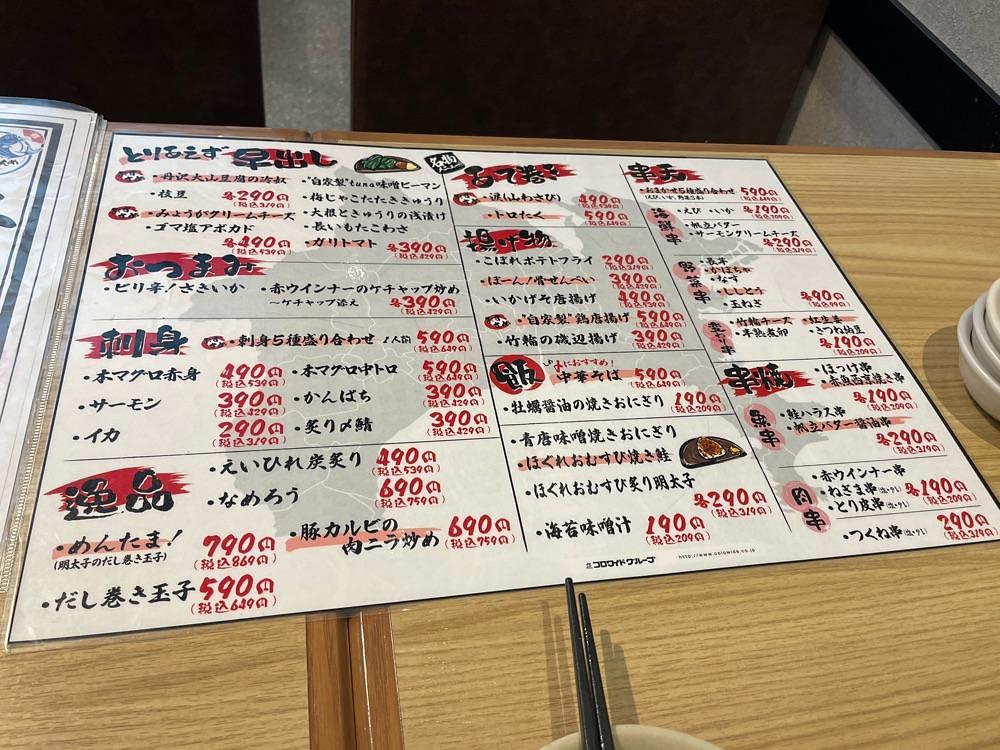 とりあえず 早出し
丹沢大山豆腐の冷奴
・枝豆
各290円
(税込319円)
・みょうがクリームチーズ
・ゴマ塩アボカド
各490円
(税込539円)
・"自家製"tuna味噌ピーマン
・梅じゃこたたききゅうり
・大根ときゅうりの浅漬け
・長いもたこわさ
・ガリトマト
各390円
(税込429円)
おつまみ
・ピリ辛!さきいか
・赤ウインナーのケチャップ炒め
〜ケチャップ添え
各390円
(税込429円)
刺身
・刺身5種盛り合わせ 1人前 590円
(税込649円)
・本マグロ赤身 490円
(税込539円)
・本マグロ中トロ 590円
(税込649円)
・サーモン 390円
(税込429円)
・かんぱち 390円
(税込429円)
・イカ 290円
(税込319円)
・炙り〆鯖 390円
(税込429円)
逸品
・えいひれ炭炙り 490円
(税込539円)
・なめろう 690円
(税込759円)
・めんたま!
(明太子のだし巻き玉子)
790円
(税込869円)
・豚カルビの
肉ニラ炒め
690円
(税込759円)
・だし巻き玉子 590円
(税込649円)
名物
あて巻き
・涙(山わさび) 490円
(税込539円)
・トロたく 590円
(税込649円)
揚げ物
・こぼれポテトフライ 290円
(税込319円)
・ぼーん!骨せんべい 390円
(税込429円)
・いかげそ唐揚げ 490円
(税込539円)
・"自家製"鶏唐揚げ 590円
(税込649円)
・竹輪の磯辺揚げ 390円
(税込429円)
飯
〆におすすめ!
中華そば 590円
(税込649円)
・牡蠣醤油の焼きおにぎり 190円
(税込209円)
・青唐味噌焼きおにぎり
・ほぐれおむすび焼き鮭
・ほぐれおむすび炙り明太子
各290円
(税込319円)
・海苔味噌汁 190円
(税込209円)
串天
・おまかせ5種盛り合わせ 590円
(税込649円)
海鮮串
・えび ・いか 各190円
(税込209円)
・帆立バター
・サーモンクリームチーズ
各290円
(税込319円)
野菜串
・長芋
・かぼちゃ
・なす
・ししとう
・玉ねぎ
各90円
(税込99円)
変わり串
・竹輪チーズ ・紅生姜
・半熟煮卵 ・きつね納豆
各190円
(税込209円)
串焼
魚串
・ほっけ串
・赤魚西京焼き串
各190円
(税込209円)
・鮭ハラス串
・帆立バター醤油串
各290円
(税込319円)
肉串
・赤ウインナー串
・ねぎま串(塩・タレ)
・とり皮串(塩・タレ)
各190円
(税込209円)
・つくね串(塩・タレ) 290円
(税込319円)
http://www.colowide.co.jp
コロワイドグループ